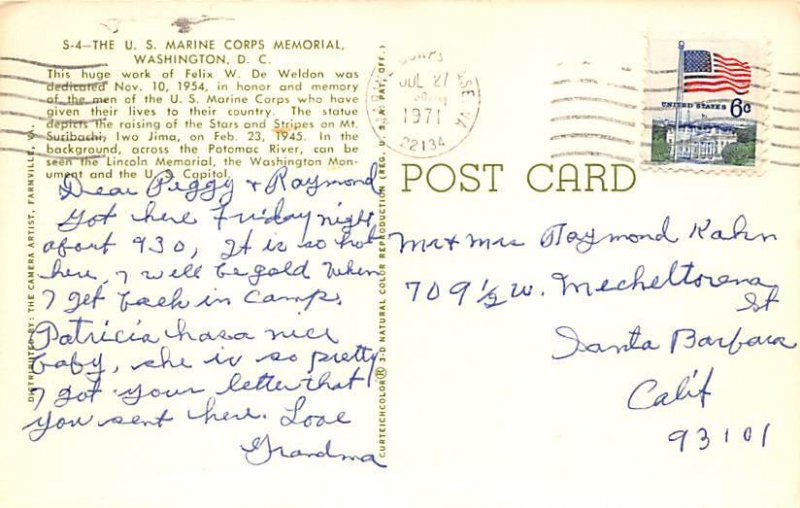 S-4—THE U. S. MARINE CORPS MEMORIAL,
WASHINGTON, D. C.
This huge work of Felix W. De Weldon was
dedicated Nov. 10, 1954, in honor and memory
of the men of the U. S. Marine Corps who have
given their lives to their country. The statue
depicts the raising of the Stars and Stripes on Mt.
Suribachi, Iwo Jima, on Feb. 23, 1945. In the
background, across the Potomac River, can be
seen the Lincoln Memorial, the Washington Mon-
ument and the U. S. Capitol.
Dear Peggy & Raymond
Got here Friday night
about 930, It is so hot
here, I will be gald when
I get back in Camp.
Patricia has a nice
baby, she is so pretty
I got your letter that
you sent here. Love
Grandma
DISTRIBUTED BY: THE CAMERA ARTIST, FARNVILLE, VA.
CURTEICHCOLOR® 3-D NATURAL COLOR REPRODUCTION (REG. U. S. A. PAT. OFF.)
CORPS
VA
JUL 27
1971
22134
UNITED STATES 6c
POST CARD
Mr & Mrs Raymond Kahn
709 ½ W. Micheltorena
St
Santa Barbara
Calif
93101